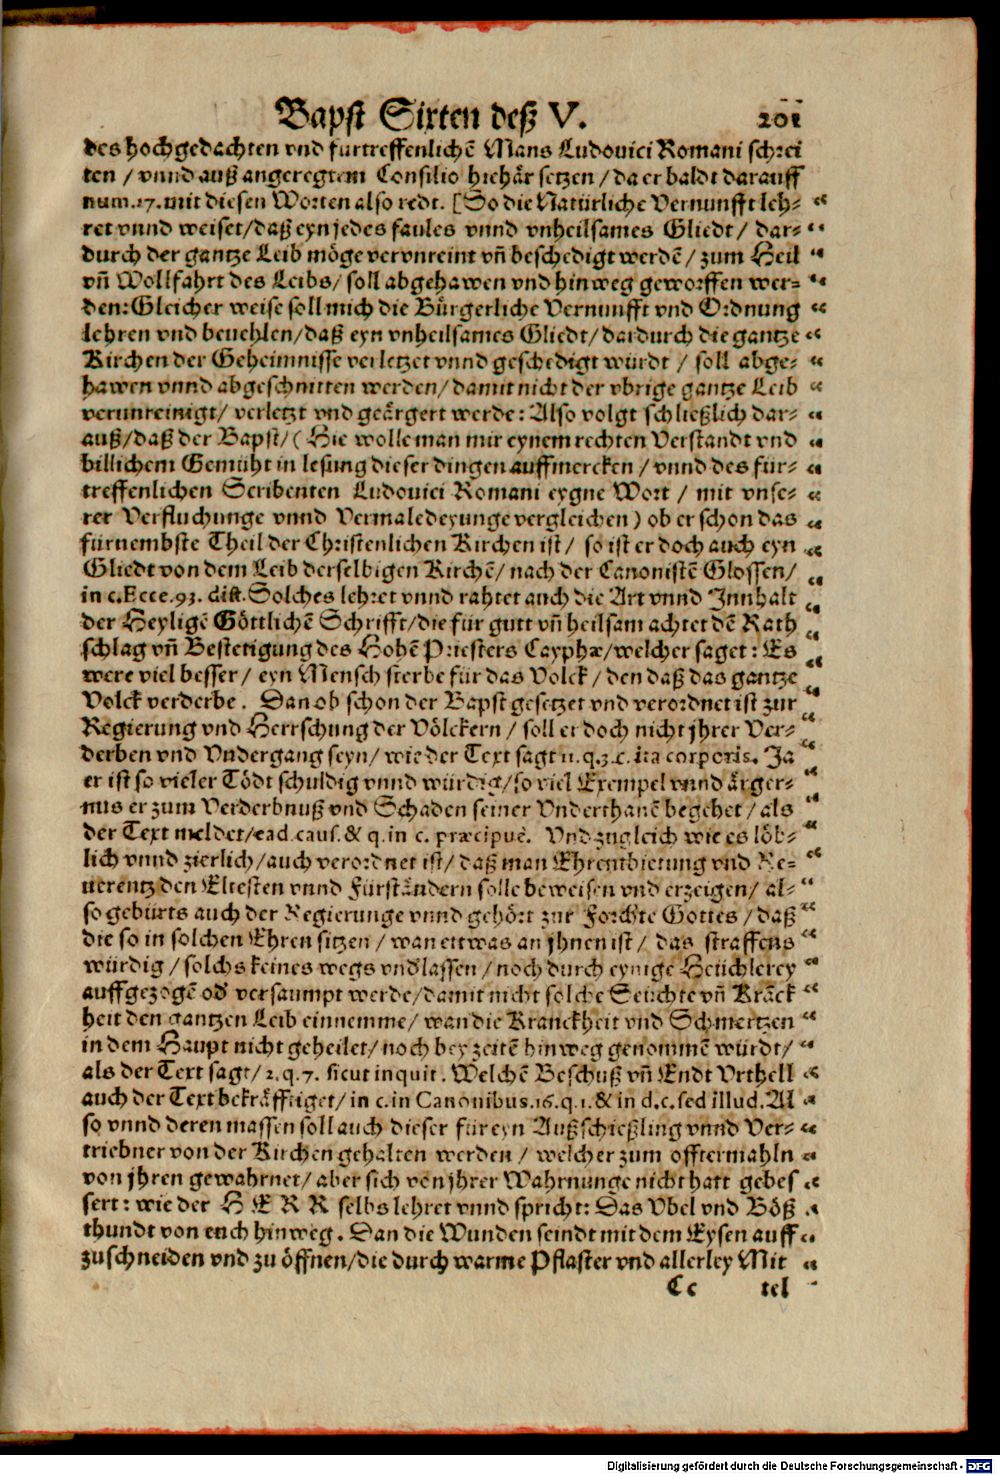 Bapst Sixten deß V. 201
des hochgedachten vnd furtreffenlichē Mans Ludouici Romani schrei
ten / vnnd auß angeregtem Consilio hiehär setzen / da er baldt darauff
num.17. mit diesen Worten also redt. [So die Natürliche Vernunfft leh-
ret vnnd weiset/daß eyn jedes faules vnnd vnheilsames Gliedt / dar-
durch der gantze Leib möge verunreint vñ beschedigt werdē / zum Heil
vñ Wollfahrt des Leibs / soll abgehawen vnd hinweg geworffen wer-
den: Gleicher weise soll mich die Bürgerliche Vernunfft vnd Ordnung
lehren vnd beuehlen/daß eyn vnheilsames Gliedt/dardurch die gantze
Kirchen der Geheimnisse verletzet vnnd geschedigt würdt / soll abge-
hawen vnnd abgeschnitten werden/damit nicht der vbrige gantze Leib
verunreinigt/ verletzt vnd geärgert werde: Also volgt schließlich dar-
auß/daß der Bapst/( Hie wolle man mir eynem rechten Verstandt vnd
billichem Gemüht in lesung dieser dingen auffmercken / vnnd des für-
treffenlichen Scribenten Ludouici Romani eygne Wort / mit vnse-
rer Verfluchunge vnnd Vermaledeyunge vergleichen ) ob er schon das
fürnembste Theil der Christenlichen Kirchen ist / so ist er doch auch eyn
Gliedt von dem Leib derselbigen Kirchē/ nach der Canonistē Glossen/
in c. Ecce. 93. dist. Solches lehret vnnd rahtet auch die Art vnnd Innhalt
der Heyligē Göttlichē Schrifft/die für gutt vñ heilsam achtet dē Rath
schlag vñ Bestetigung des Hohē Priesters Cayphæ/welcher saget: Es
were viel besser / eyn Mensch sterbe für das Volck / den daß das gantze
Volck verderbe. Dan ob schon der Bapst gesetzet vnd verordnet ist zur
Regierung vnd Herrschung der Völckern / soll er doch nicht jhrer Ver-
derben vnd Vndergang seyn / wie der Text sagt 11. q. 3. c. ita corporis. Ja
er ist so vieler Tödt schuldig vnnd würdig/so viel Exempel vnnd ärger-
nus er zum Verderbnuß vnd Schaden seiner Vnderthanē begehet / als
der Text meldet/ead. caus. & q. in c. præcipuè. Vnd zugleich wie es löb-
lich vnnd zierlich/auch verordnet ist/ daß man Ehrentbietung vnd Re-
uerentz den Eltesten vnnd Fürständern solle beweisen vnd erzeigen / al-
so gebürts auch der Regierunge vnnd gehört zur Forchte Gottes / daß
die so in solchen Ehren sitzen / wan ettwas an jhnen ist / das straffens
würdig / solchs keines wegs vnd'lassen / noch durch eynige Heuchlerey
auffgezogē od' versaumpt werde/damit nicht solche Seuchte vñ Kräck
heit den gantzen Leib einnemme/ wan die Kranckheit vnd Schmertzen
in dem Haupt nicht geheilet/ noch bey zeitē hinweg genommē würdt/
als der Text sagt / 2. q. 7. sicut inquit. Welchē Beschuß vñ Endt Vrtheil
auch der Text bekräfftiget/ in c. in Canonibus. 16. q. 1. & in d. c. sed illud. Al
so vnnd deren massen soll auch dieser für eyn Außschießling vnnd Ver-
triebner von der Kirchen gehalten werden / welcher zum offtermahln
von jhren gewahrnet / aber sich von jhrer Wahrnunge nicht hatt gebes
sert: wie der H E R R selbs lehret vnnd spricht: Das Vbel vnd Böß
thundt von euch hinweg. Dan die Wunden seindt mit dem Eysen auff
zuschneiden vnd zu öffnen/die durch warme Pflaster vnd allerley Mit
Cc tel
Digitalisierung gefördert durch die Deutsche Forschungsgemeinschaft - DFG